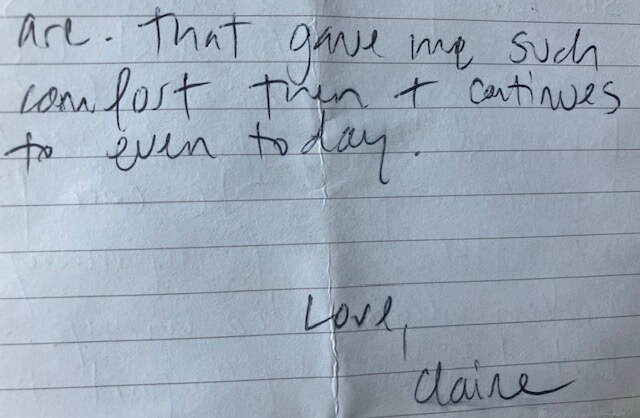 are. That gave me such
comfort then + continues
to even today.
Love,
Claire